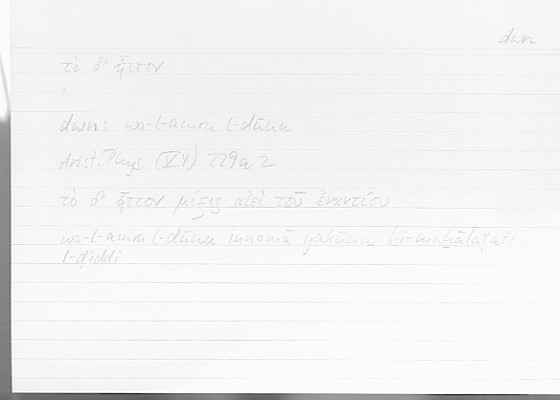 dwn
τὸ δ' ἧττον
dwn: wa-l-amru l-dūnu
Arist. Phys. (V4) 229a2
τὸ δ' ἧττον μίξις αἰεὶ τοῦ ἐναντίου
wa-l-amru l-dūnu innamā yakūnu bi-muḫālaṭati
l-ḍiddi